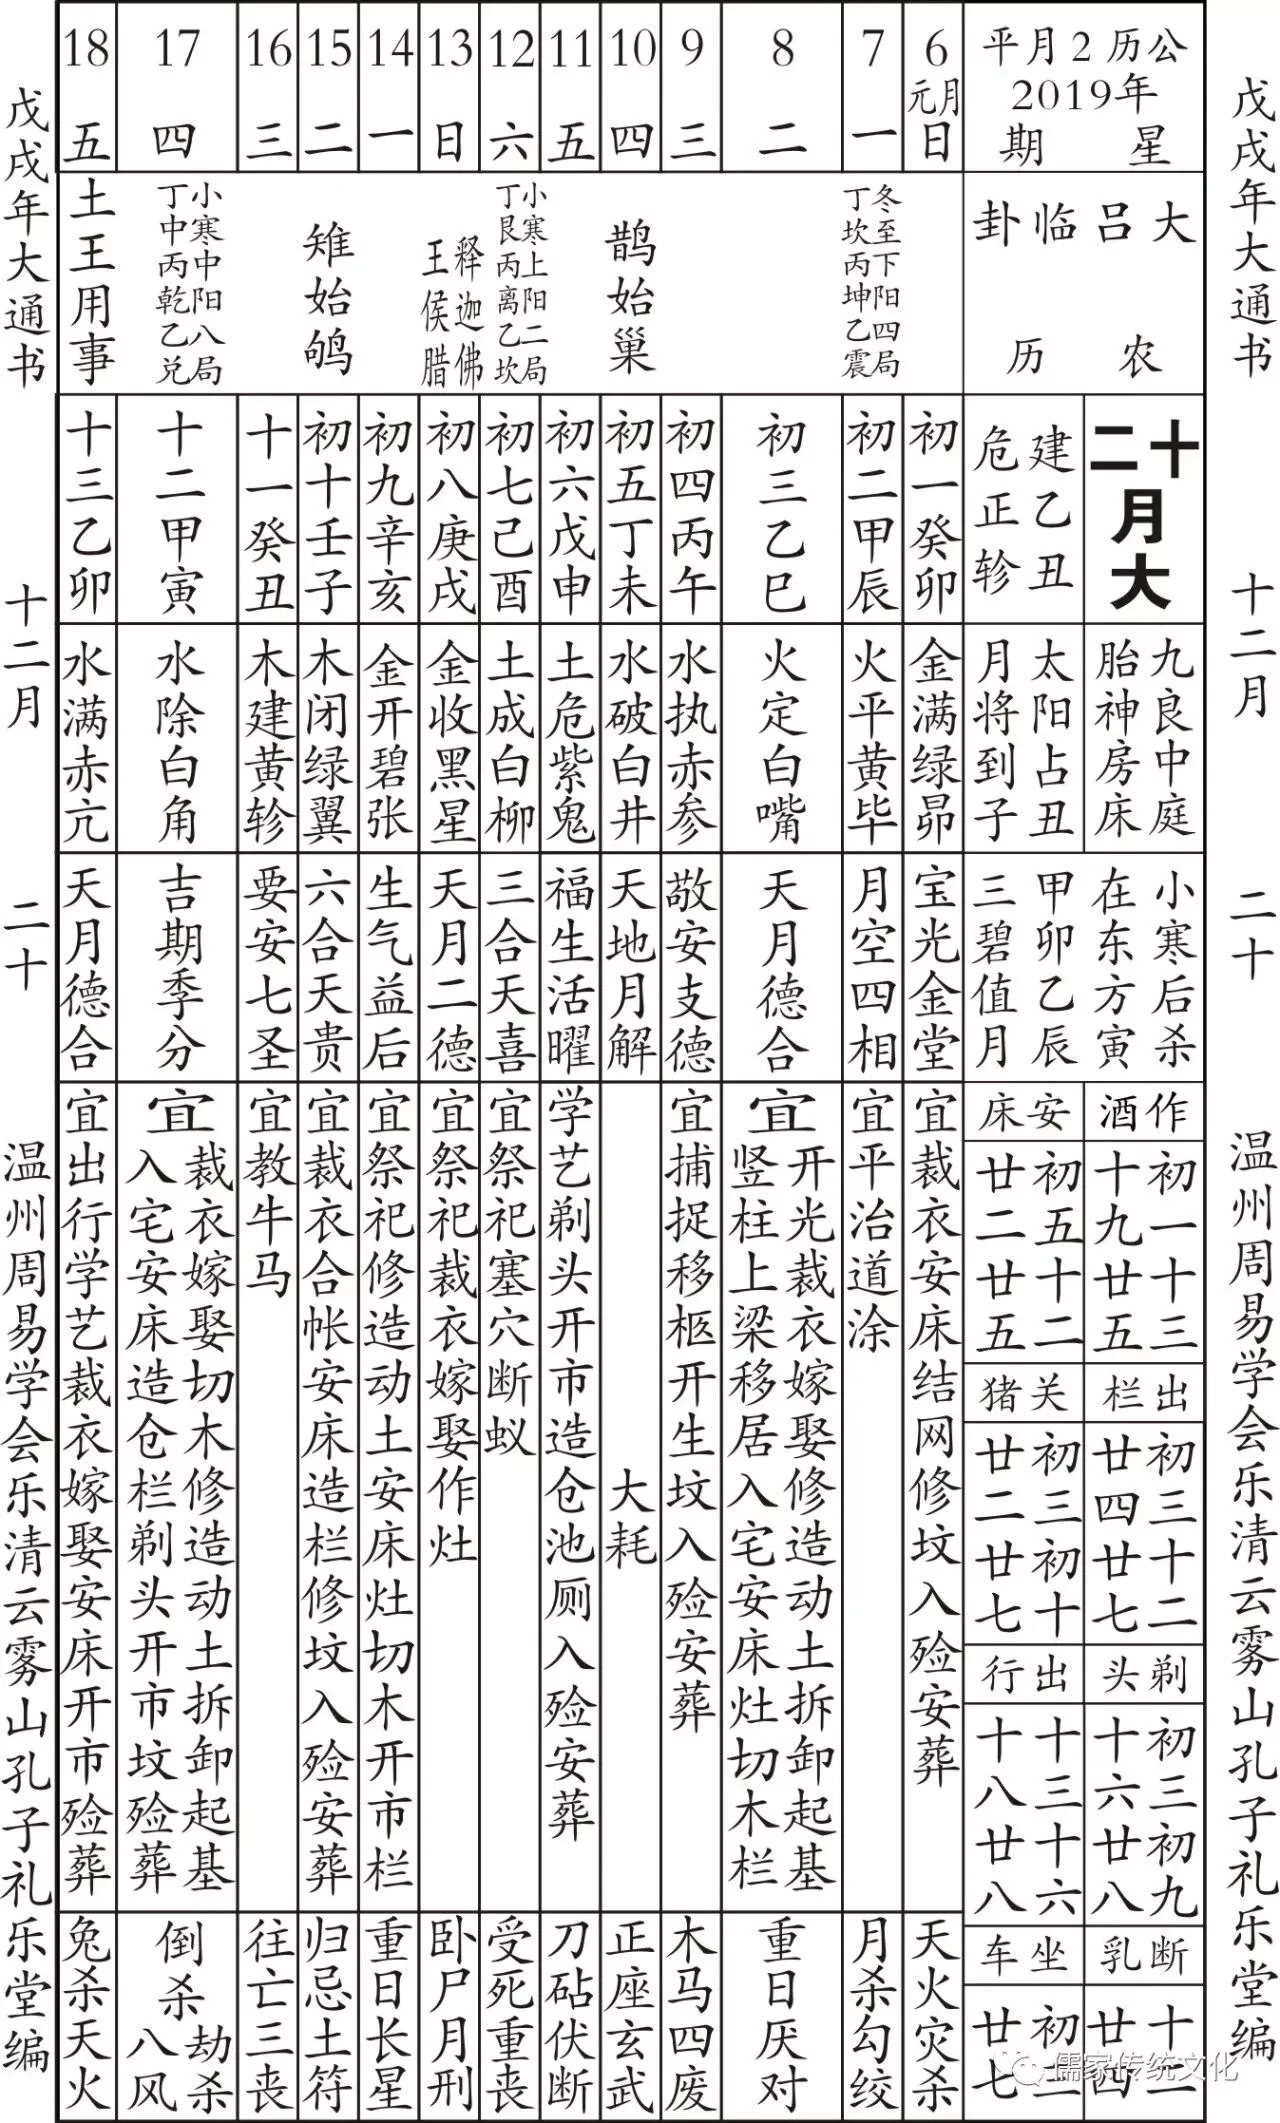 戊戌年大通书
十二月
二十
温州周易学会乐清云雾山孔子礼乐堂编
公历2月平
2019年
星期
大吕临卦
农历
十二月大
建乙丑
危正轸
九良中庭
胎神房床
太阳占丑
月将到子
小寒后杀
在东方寅
甲卯乙辰
三碧值月
作酒
初一十三
十九廿五
安床
初五十二
廿二廿五
出栏
初三十二
廿四廿七
关猪
初三初十
廿二廿七
剃头
初三初九
十六廿八
出行
十三十六
十八廿八
断乳
十二
廿四
坐车
初
廿七
6
元月
日
初一癸卯
金满绿昴
宝光金堂
宜裁衣安床结网修坟入殓安葬
天火灾杀
7
一
冬至下阳四局
丁坎丙坤乙震
初二甲辰
火平黄毕
月空四相
宜平治道涂
月杀勾绞
8
二
初三乙巳
火定白嘴
天月德合
宜
开光裁衣嫁娶修造动土拆卸起基
竖柱上梁移居入宅安床灶切木栏
重日厌对
9
三
初四丙午
水执赤参
敬安支德
宜捕捉移柩开生坟入殓安葬
木马四废
10
四
鹊始巢
初五丁未
水破白井
天地月解
大耗
正座玄武
11
五
初六戊申
土危紫鬼
福生活曜
学艺剃头开市造仓池厕入殓安葬
刀砧伏断
12
六
小寒上阳二局
丁艮丙离乙坎
初七己酉
土成白柳
三合天喜
宜祭祀塞穴断蚁
受死重丧
13
日
释迦佛
王侯腊
初八庚戌
金收黑星
天月二德
宜祭祀裁衣嫁娶作灶
卧尸月刑
14
一
初九辛亥
金开碧张
生气益后
宜祭祀修造动土安床灶切木开市栏
重日长星
15
二
雉始鸲
初十壬子
木闭绿翼
六合天贵
宜裁衣合帐安床造栏修坟入殓安葬
归忌土符
16
三
十一癸丑
木建黄轸
要安七圣
宜教牛马
往亡三丧
17
四
小寒中阳八局
丁中丙乾乙兑
十二甲寅
水除白角
吉期季分
宜
裁衣嫁娶切木修造动土拆卸起基
入宅安床造仓栏剃头开市坟殓葬
倒杀
劫杀
八风
18
五
土王用事
十三乙卯
水满赤亢
天月德合
宜出行学艺裁衣嫁娶安床开市殓葬
兔杀天火
戊戌年大通书
十二月
二十
温州周易学会乐清云雾山孔子礼乐堂编
儒家传统文化